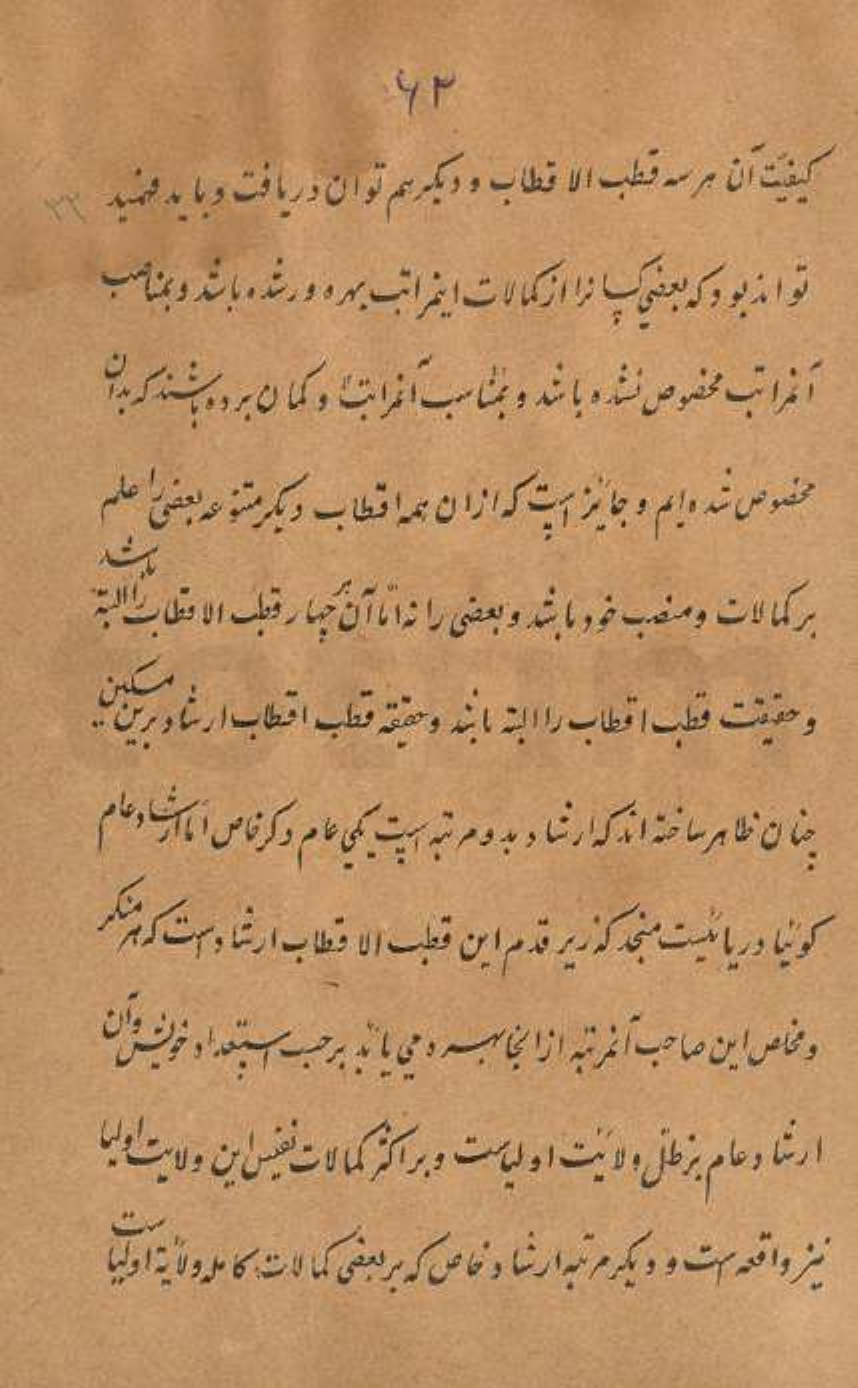 ۶۲
کیفیّت آن هر سه قطب الاقطاب و دیکر هم توان دریافت و باید فهمید
۳۲
تواند بود که بعضی کسانرا از کمالات اینمراتب بهره ور شده باشد و بمناصب
آنمراتب مخصوص نشده باشد و بمناسب آنمراتب و کمان برده باشند که بدان
مخصوص شده ایم و جایز است که ازان همه اقطاب دیکر متنوعه بعضی را علم
بر کمالات و منصب خود باشد و بعضی را نه امّا آن هر چهار قطب الاقطاب را البتّه باشد
و حقیقت قطب اقطاب را البته یابند و حقیقه قطب اقطاب ارشاد برین مسکین
چنان ظاهر ساخته اند که ارشاد بدو مرتبه است یکی عام دکر خاص امّا ارشاد عام
کوئیا دریائیست منجد که زیر قدم این قطب الاقطاب ارشادست که هر منکر
و مخلص این صاحب آنمرتبه ازانجا بهره می یابد بر حسب استعداد خویش و آن
ارشاد عام بر ظلّ ولایَت اولیاست و بر اکثر کمالات نفیس این ولایت اولیا
نیز واقعه ست و دیکر مرتبه ارشاد خاص که بر بعضی کمالات کامله ولایة اولیا ست